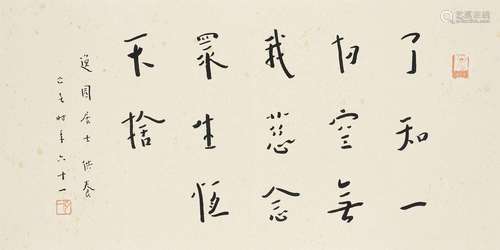 了知一
切空無
我慈念
眾生恆
不捨
逸園居士供養
亥時年六十一